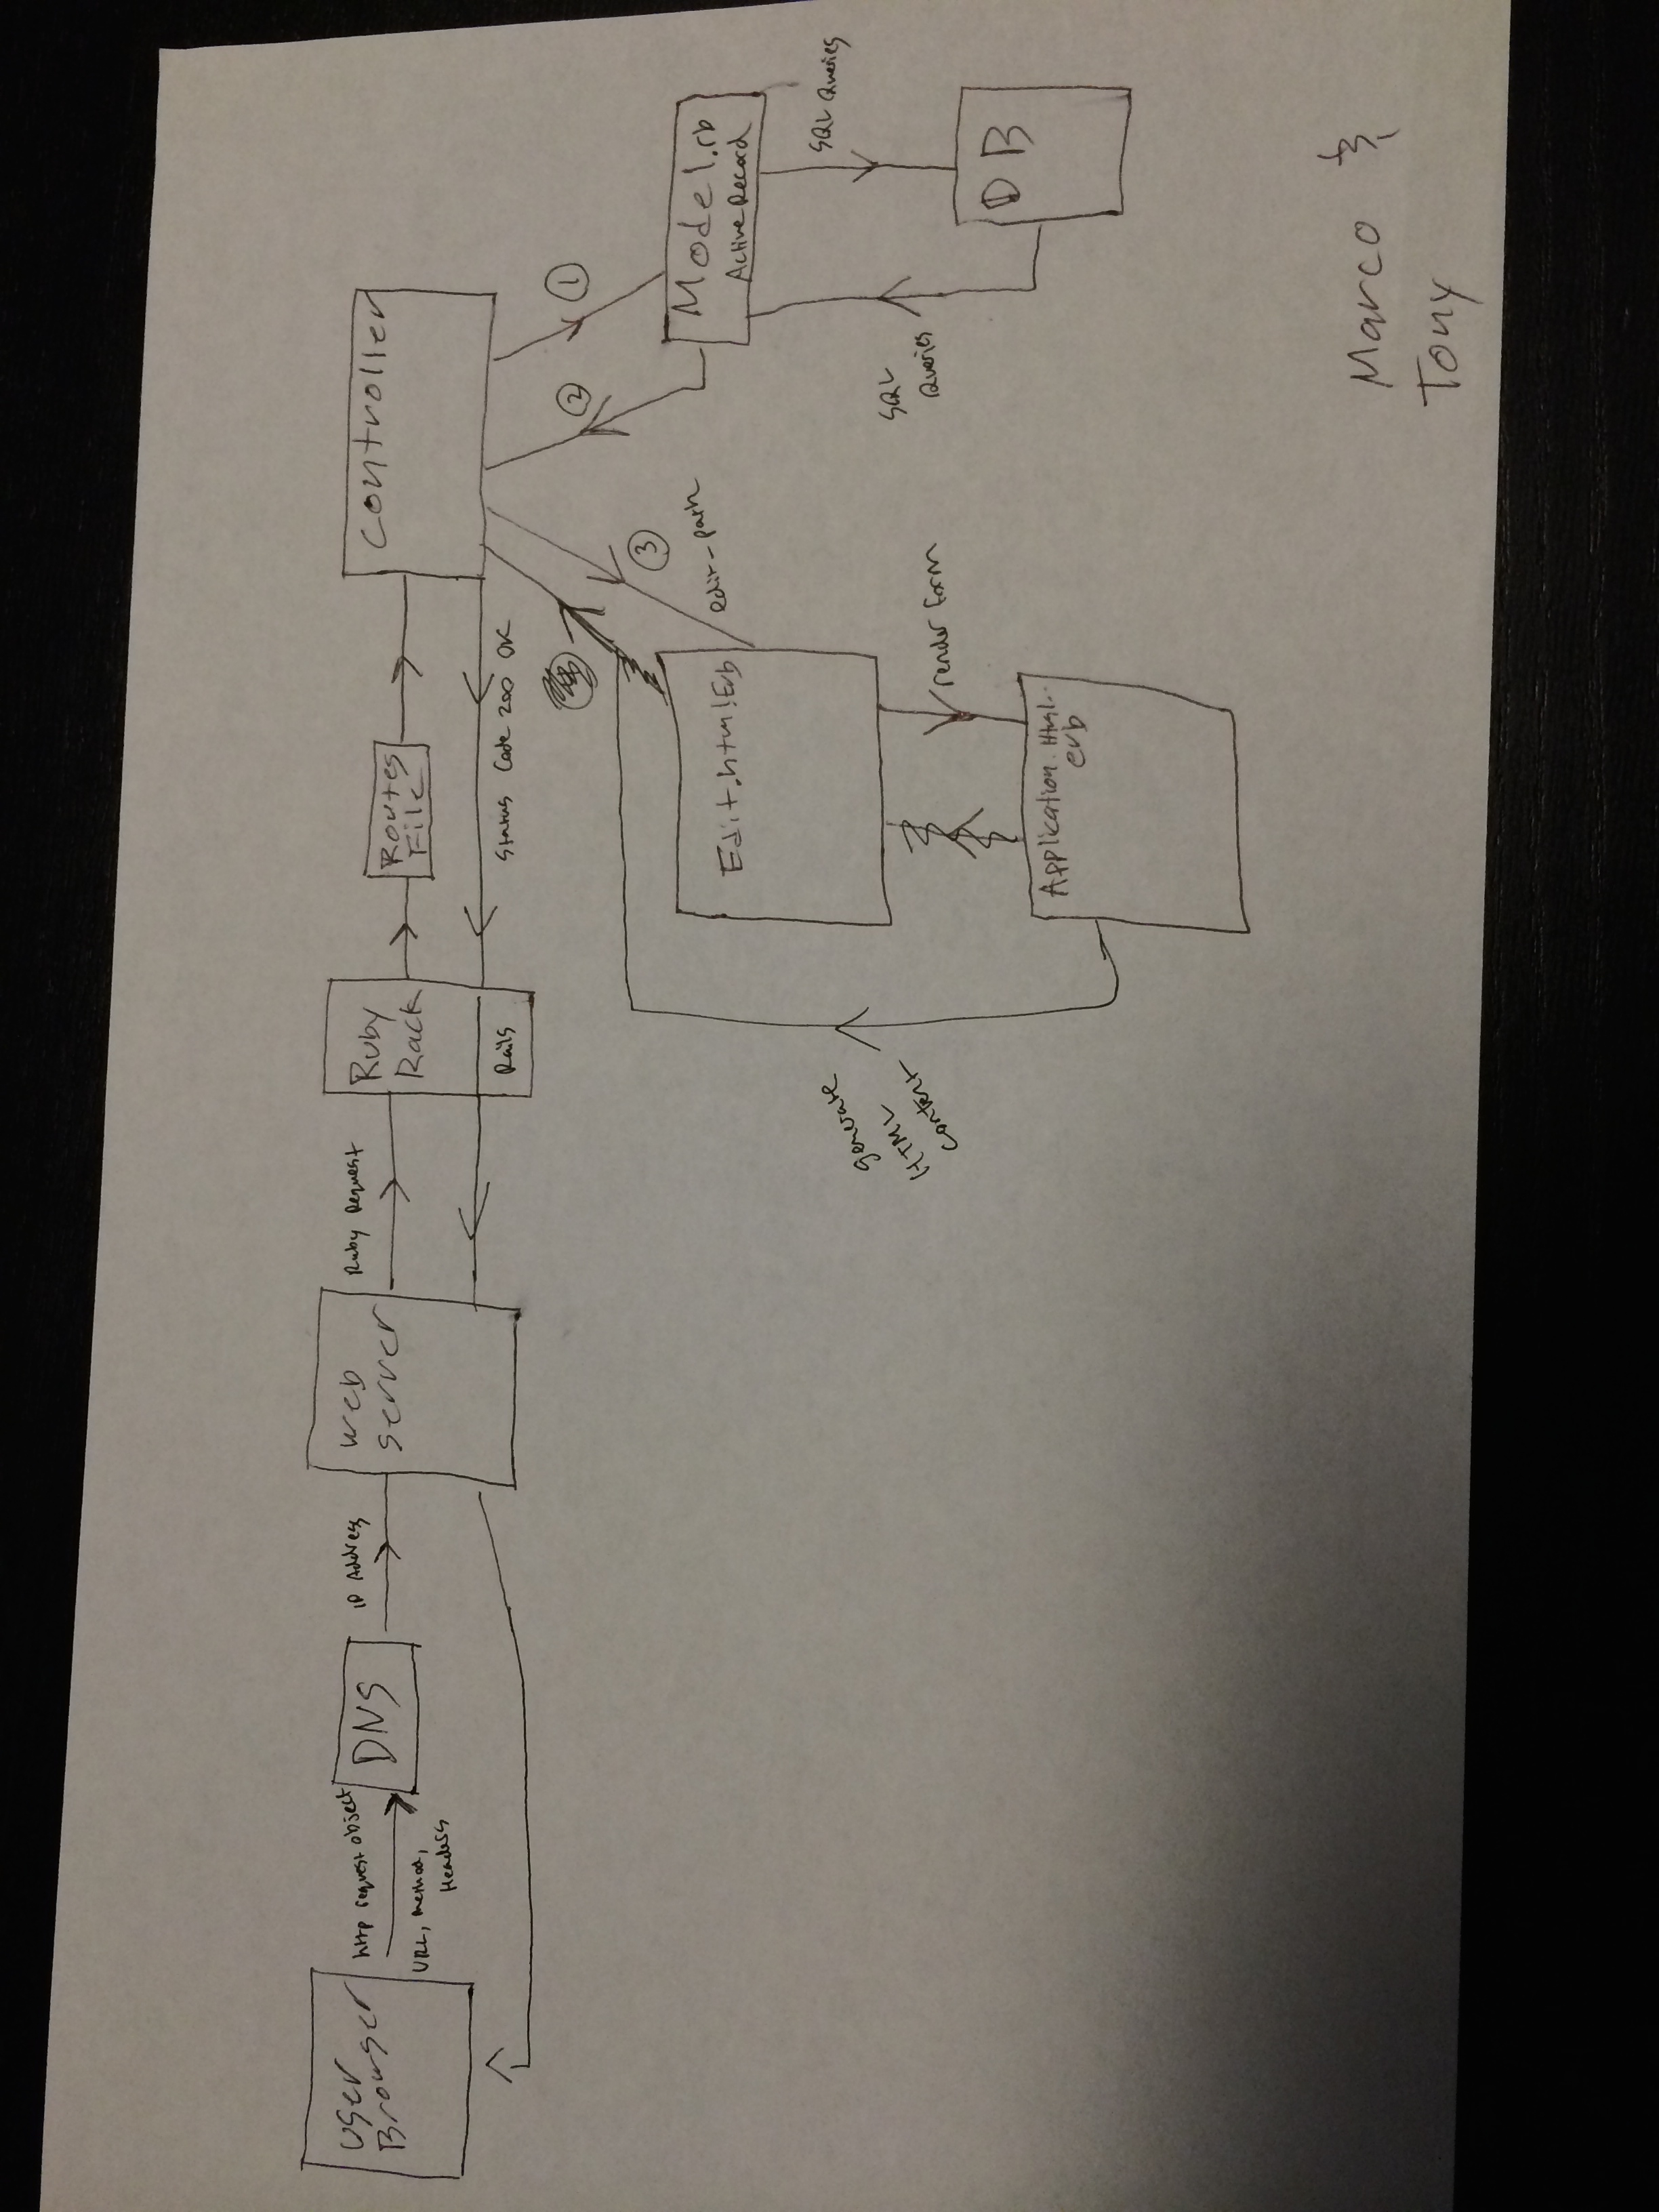 User
Browser
http request object
URL, method,
Headers
DNS
IP Address
Web
Server
Ruby Request
Ruby
Rack
Rails
Routes
File
Status Code 200 OK
Controller
1
2
3
edit-path
Model.rb
Active Record
SQL Queries
SQL
Queries
DB
Edit.html.Erb
render form
Application.Html..
erb
generate
HTML
content
Marco &
Tony